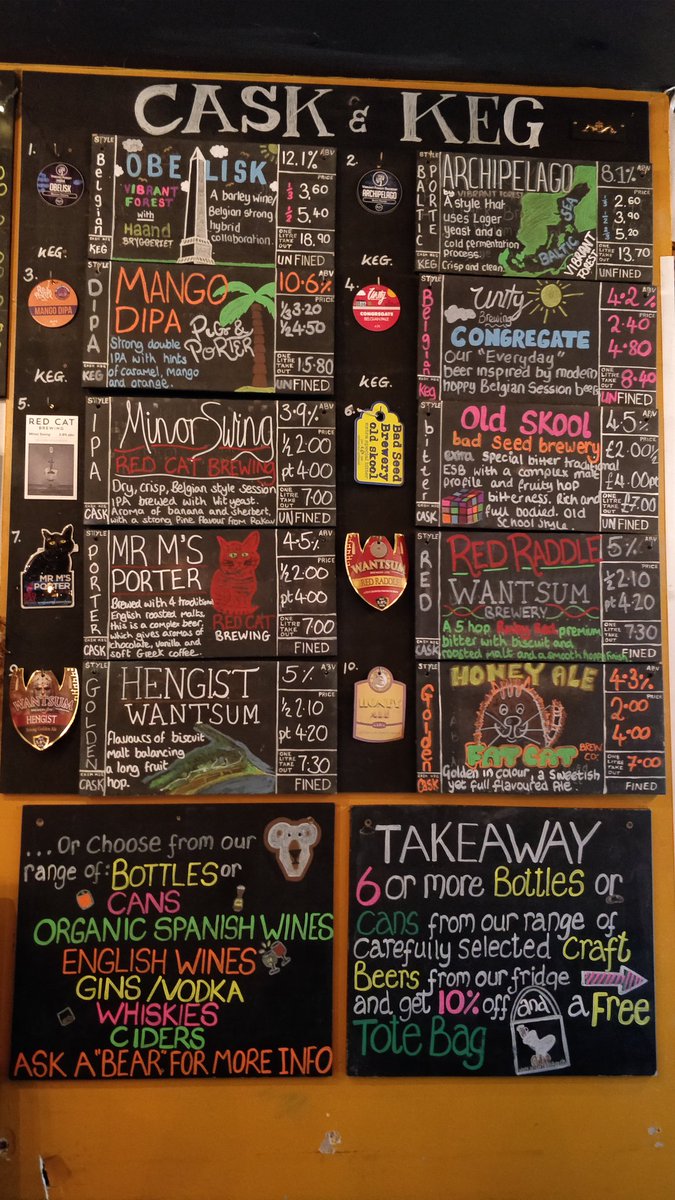 CASK & KEG
1.
OBELISK
KEG.
STYLE
Belgian
CASK KEG
KEG
OBELISK
VIBRANT
FOREST
with
Haand
BRYGGERIET
A barley wine/
Belgian strong
hybrid
collaboration.
12.1% ABV
PRICE
1/3 3.60
1/2 5.40
ONE
LITRE
TAKE
OUT
18.90
UNFINED
2.
ARCHIPELAGO
KEG.
STYLE
BALTIC
PORTER
KEG
ARCHIPELAGO
by VIBRANT FOREST
A style that
uses Lager
yeast and a
cold fermentation
process.
Crisp and clean.
BALTIC
SEA
VIBRANT
FOREST
8.1% ABV
PRICE
2.60
3.90
5.20
ONE
LITRE
TAKE
OUT
13.70
UNFINED
3.
MANGO DIPA
KEG.
STYLE
DIPA
CASK KEG
KEG
MANGO
DIPA
Pigs &
PORTER
Strong double
IPA with hints
of caramel, mango
and orange.
10.6% ABV
PRICE
1/3 3.20
1/2 4.50
ONE
LITRE
TAKE
OUT
15.80
UNFINED
4.
Unity
CONGREGATE
KEG.
STYLE
Belgian
Keg
Unity
Brewing
CONGREGATE
Our "Everyday"
beer inspired by modern
hoppy Belgian Session beers
4.2%
PRICE
2.40
4.80
ONE
LITRE
TAKE
OUT
8.40
UNFINED
5.
RED CAT
BREWING
STYLE
IPA
CASK
Minor Swing
RED CAT BREWING
Dry, crisp, Belgian style session
IPA brewed with Wit yeast.
Aroma of banana and sherbert
with a strong Pine flavour from Rakau
3.9% ABV
PRICE
1/2 2.00
pt 4.00
ONE
LITRE
TAKE
OUT
7.00
UNFINED
6.
Bad Seed
Brewery
old skool
STYLE
bitter
CASK
Old SKOOL
bad seed brewery
extra special bitter traditional
ESB with a complex malt
profile and fruity hop
bitterness. Rich and
full bodied. Old
School style.
4.5% ABV
PRICE
£2.00 1/2
£4.00pt
ONE
LITRE
TAKE
OUT
£7.00
UNFINED
7.
MR M'S
PORTER
STYLE
PORTER
CASK
MR M'S
PORTER
Brewed with 4 traditional
English roasted malts,
this is a complex beer,
which gives aromas of
chocolate, vanilla and
soft Greek coffee.
RED CAT
BREWING
4.5% ABV
PRICE
1/2 2.00
pt 4.00
ONE
LITRE
TAKE
OUT
7.00
FINED
WANTSUM
RED RADDLE
STYLE
RED
CASK
RED RADDLE
WANTSUM
BREWERY
A 5 hop Ruby Red premium
bitter with biscuit and
roasted malt and a smooth hoppy finish.
5% ABV
PRICE
1/2 2.10
pt 4.20
ONE
LITRE
TAKE
OUT
7.30
FINED
9.
WANTSUM
HENGIST
STYLE
GOLDEN
CASK
HENGIST
WANTSUM
flavours of biscuit
malt balancing
a long fruit
hop.
5% ABV
PRICE
1/2 2.10
pt 4.20
ONE
LITRE
TAKE
OUT
7.30
FINED
10.
HONEY
ALE
STYLE
Golden
CASK
HONEY ALE
FAT CAT
BREW
CO.
Golden in colour, a sweetish
yet full flavoured Ale
4.3% ABV
PRICE
2.00
4.00
ONE
LITRE
TAKE
OUT
7.00
FINED
...Or Choose from our
range of: BOTTLES or
CANS
ORGANIC SPANISH WINES
ENGLISH WINES
GINS /VODKA
WHISKIES
CIDERS
ASK A "BEAR" FOR MORE INFO
TAKEAWAY
6 or more Bottles or
cans from our range of
carefully selected Craft
Beers from our fridge
and get 10% off and a Free
Tote Bag